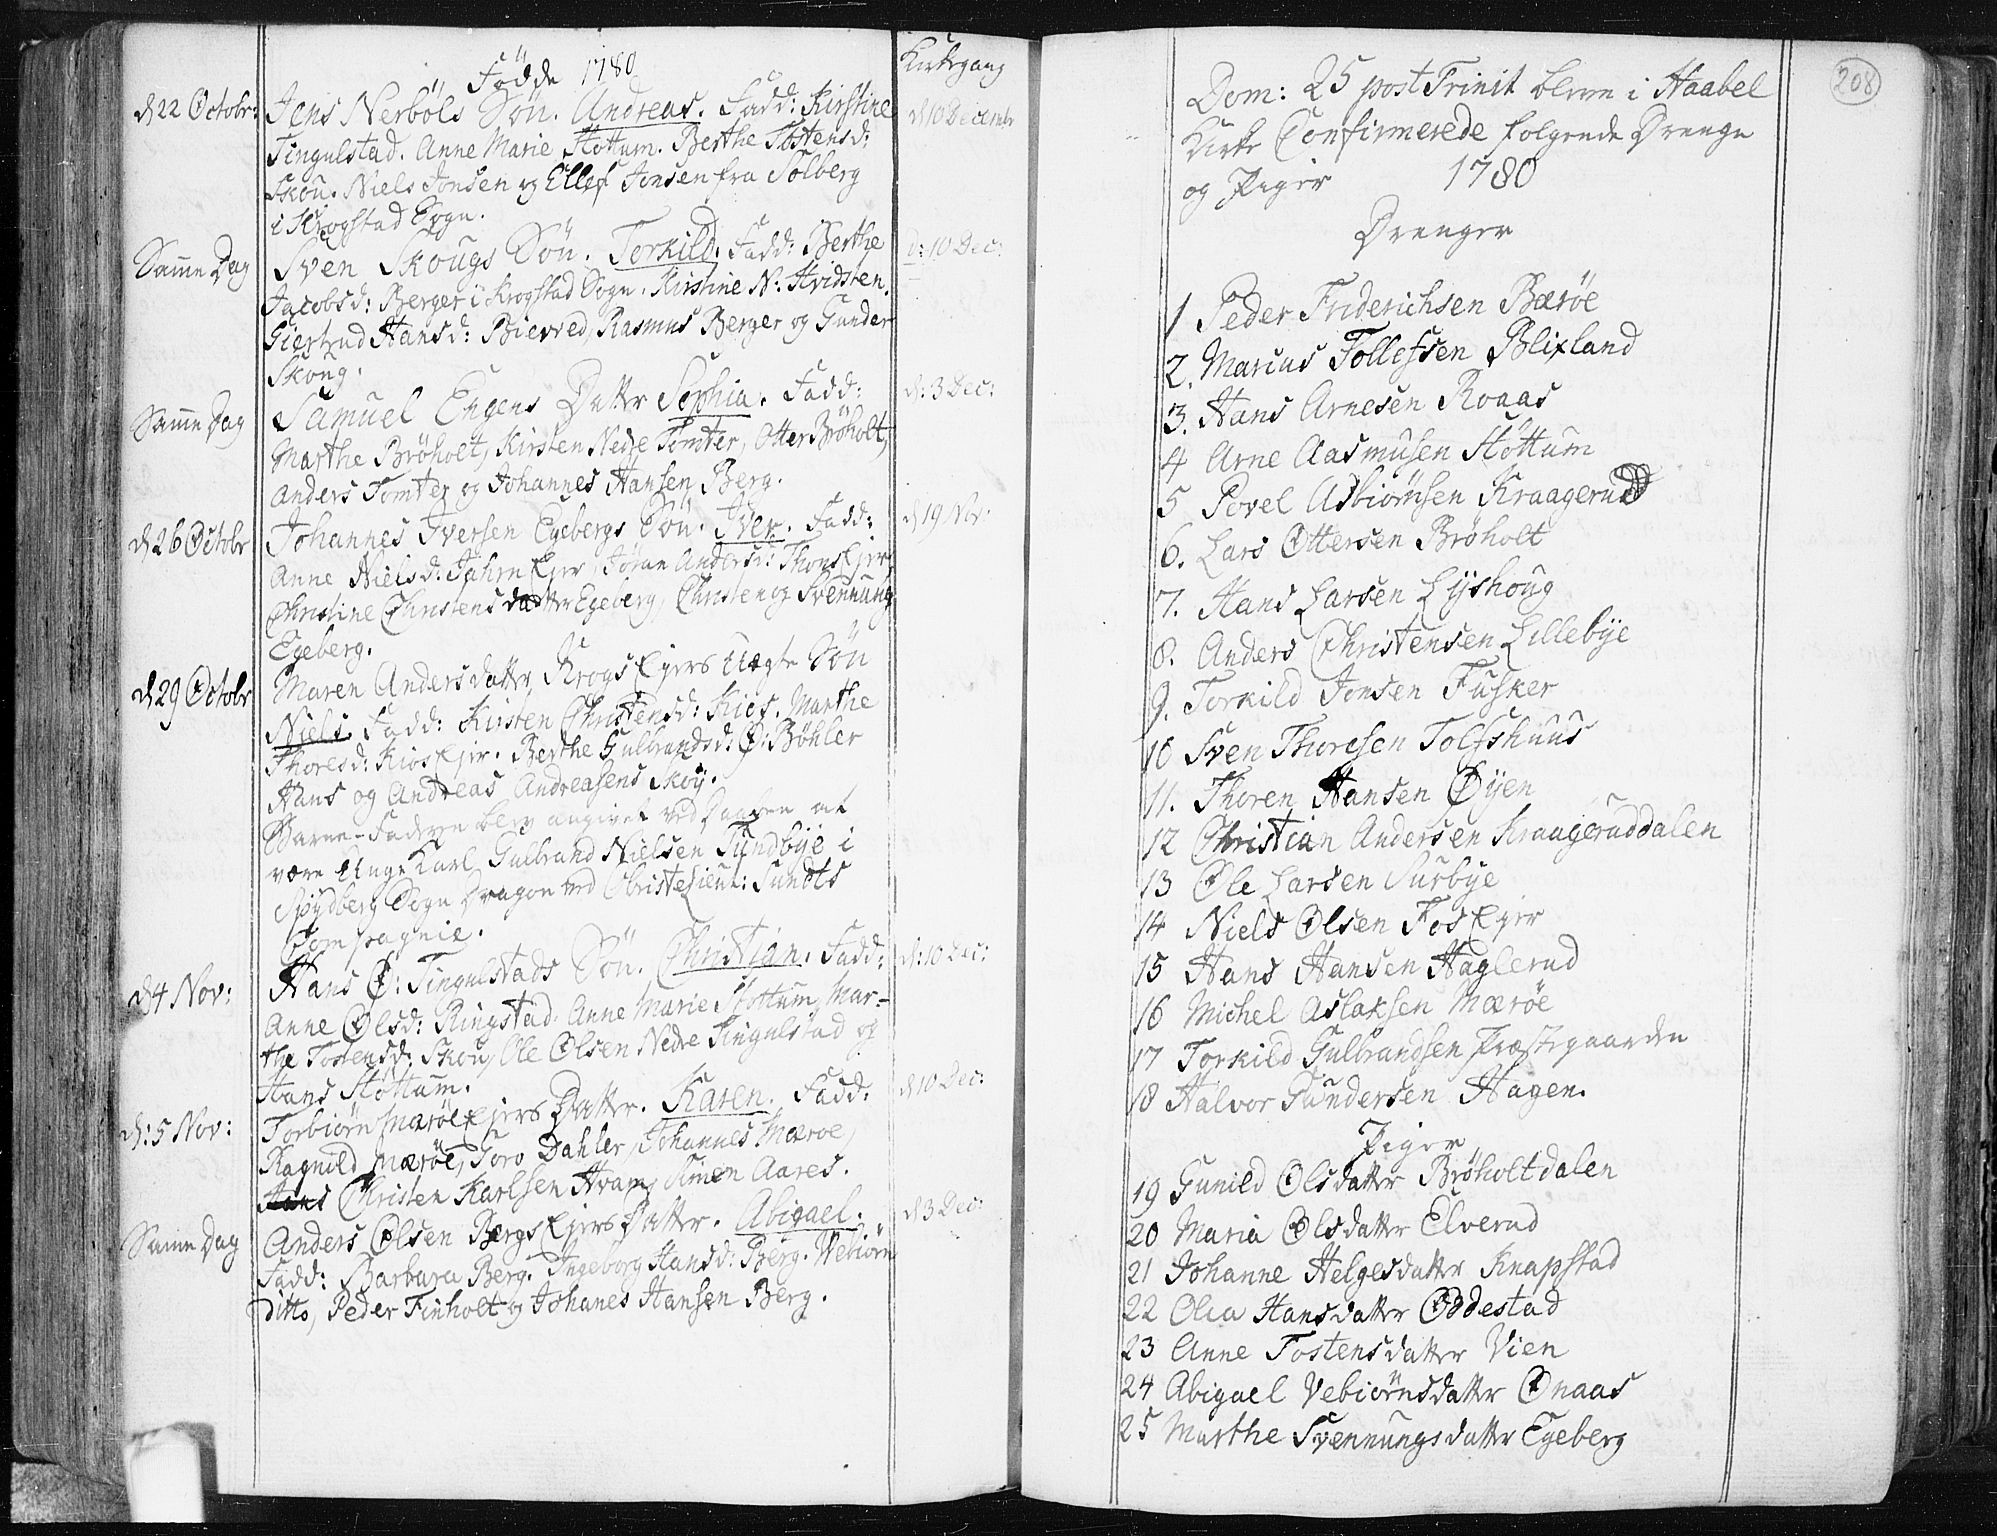 Fødde 1780
Kirkegang
d 22 Octobr: Jens Nerbøls Søn. Andreas. Fadd: Kirstine d 10 Decembr
Tingulstad. Anne Marie Støttum. Berthe Tostensd:
Skou. Niels Jonsen og Ellef Jonsen fra Solberg
i Krogstad Sogn.
Samme Dag Sven Skougs Søn. Torkild. Fadd: Berthe d: 10 Dec:
Jacobsd: Berger i Krogstad Sogn. Kirstine N: Hvidsten.
Giertrud Hansd: Bierred, Rasmus Berger og Gunder
Skoug.
Samme Dag Samuel Engens Datter Sophia. Fadd: d: 3 Dec:
Marthe Brøholt, Kirsten Nedre Tomter, Otter Brøholt,
Anders Tomter og Johannes Hansen Berg.
d 26 Octobr Johannes Iversen Egebergs Søn. Iver. Fadd: d 19 Nov.
Anne Nielsd: Jahren Ejer, Jøran Andersd: Thons Ejer,
Christine Christensdatter Egeberg, Christen og Svennung
Egeberg.
d 29 Octobr Maren Andersdatter Krogs Ejers Uægte Søn
Niels. Fadd: Kirsten Christensd: Kios. Marthe
Thoresd: Kios Ejer. Berthe Gulbrandsd: Ø: Bøhler
Hans og Andreas Andreasens Skoy.
Barne-Faderen blev angivet ved Daaben at
være Unge Karl Gulbrand Nielsen Sundbye i
Spydberg Sogn Dragon ved Lieut: Sundts
Compagnie.
d 4 Nov: Hans Ø: Tingulstads Søn. Christian. Fadd: d: 10 Dec:
Anne Olsd: Ringstad. Anne Marie Støttum, Mar-
the Tostensd: Skou, Ole Olsen Nedre Tingulstad og
Hans Støttum.
d: 5 Nov: Torbiørn Mærøe Ejers Datter. Karen. Fadd: d 10 Dec:
Ragnild Mærøe, Toro Dahler, Johannes Mærøe,
Hans Christen Karlsen Hvam, Simen Aares.
Samme Dag Anders Olsen Bergs Ejers Datter. Abigael. d 3 Dec:
Fadd: Barbara Berg. Ingeborg Hansd: Berg. Vebiørn
Ditto, Peder Finholt og Johanes Hansen Berg.
208
Dom: 25 post Trinit bleve i Haabel
Kirke Confirmerede følgende Drenge
og Piger 1780
Drenger
1 Peder Friderichsen Bærøe
2. Marcus Tollefsen Blixland
3. Hans Arnesen Roaas
4 Arne Aasmusen Støttum
5 Povel Asbiørnsen Kraagerud
6. Lars Ottersen Brøholt
7. Hans Larsen Lyshoug
8. Anders Christensen Lillebye
9. Torkild Jonsen Fusker
10 Sven Thoresen Tolfshuus
11. Thoren Hansen Øyen
12 Christian Andersen Kraageruddalen
13 Ole Larsen Surbye
14 Niels Olsen Fos Ejer
15 Hans Hansen Haglerud
16 Michel Aslaksen Mærøe
17 Torkild Gulbrandsen Præstegaarden
18 Halvor Gundersen Hagen.
Piger
19 Gunild Olsdatter Brøholtdalen
20 Maria Olsdatter Elverud
21 Johanne Helgesdatter Knapstad
22 Olea Hansdatter Oddestad
23 Anne Tostensdatter Vien
24 Abigael Vebiørnsdatter Onaas
25 Marthe Svennungsdatter Egeberg